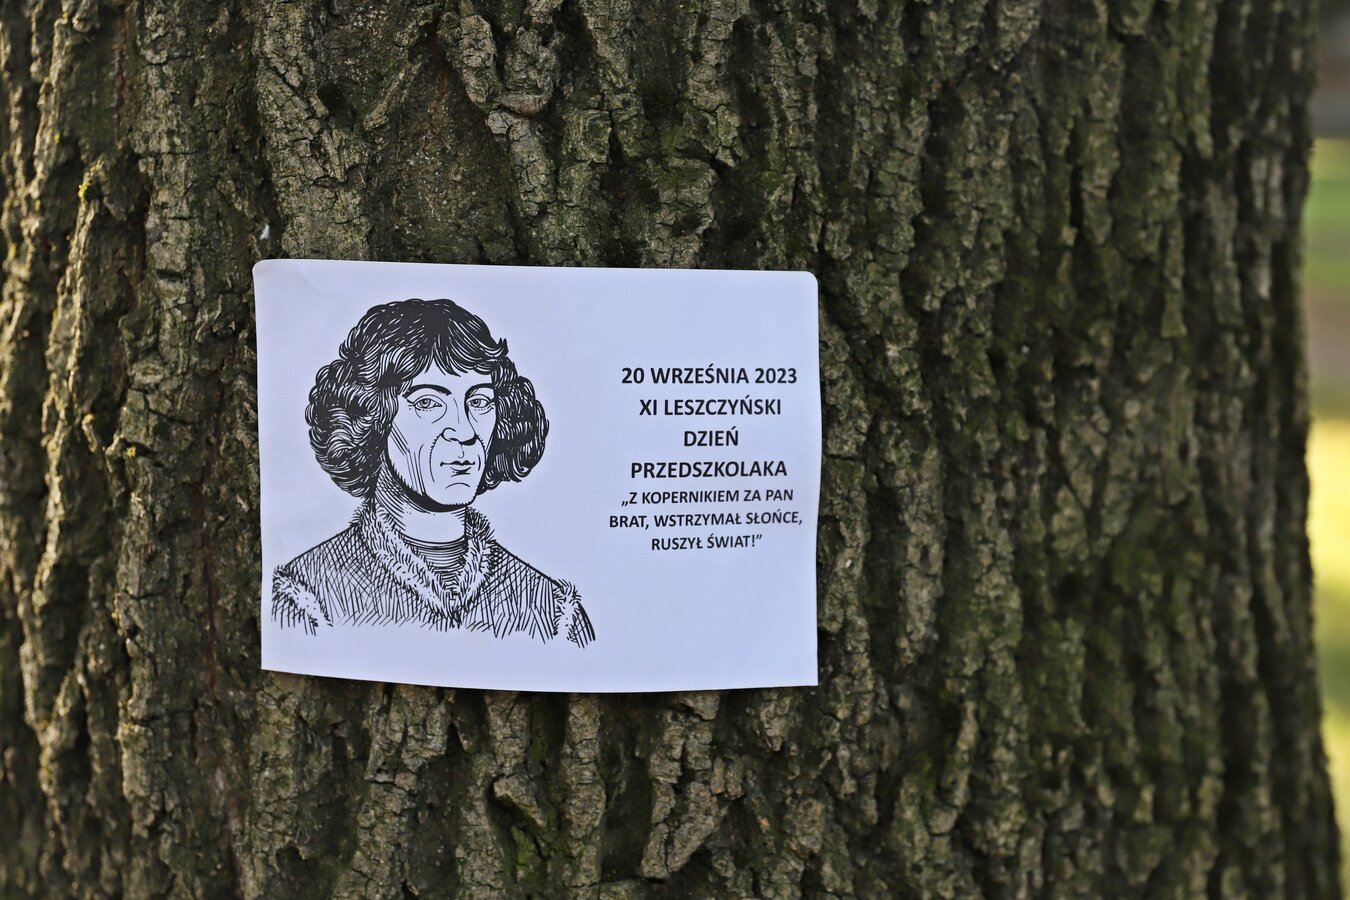 20 WRZEŚNIA 2023
XI LESZCZYŃSKI
DZIEŃ
PRZEDSZKOLAKA
„Z KOPERNIKIEM ZA PAN
BRAT, WSTRZYMAŁ SŁOŃCE,
RUSZYŁ ŚWIAT!”